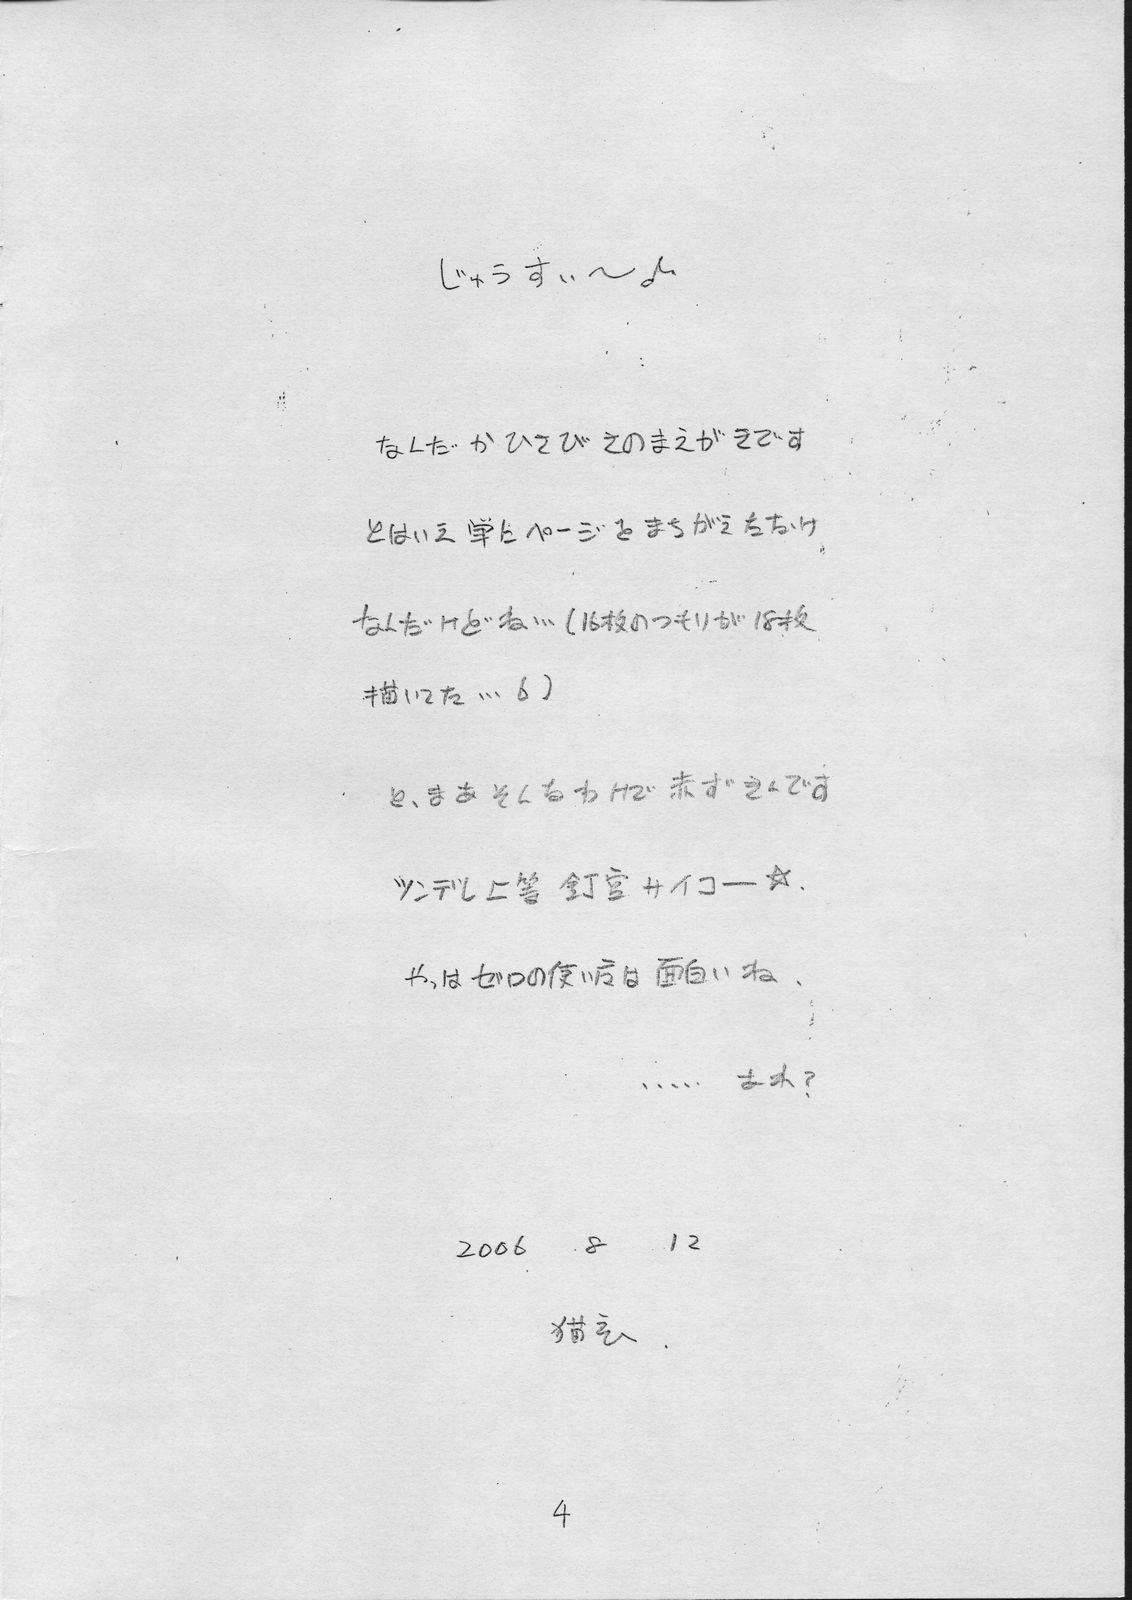 じゅうすぃ〜♪
なんだかひさびさのまえがきです
とはいえ単にページをまちがえただけ
なんだけどね…(16枚のつもりが18枚
描いてた…6)
と、まあそんなわけで赤ずきんです
ツンデレ上等 釘宮サイコー☆.
やっはゼロの使い魔は面白いね、
..... あれ?
2006 8 12
猫玄.
4